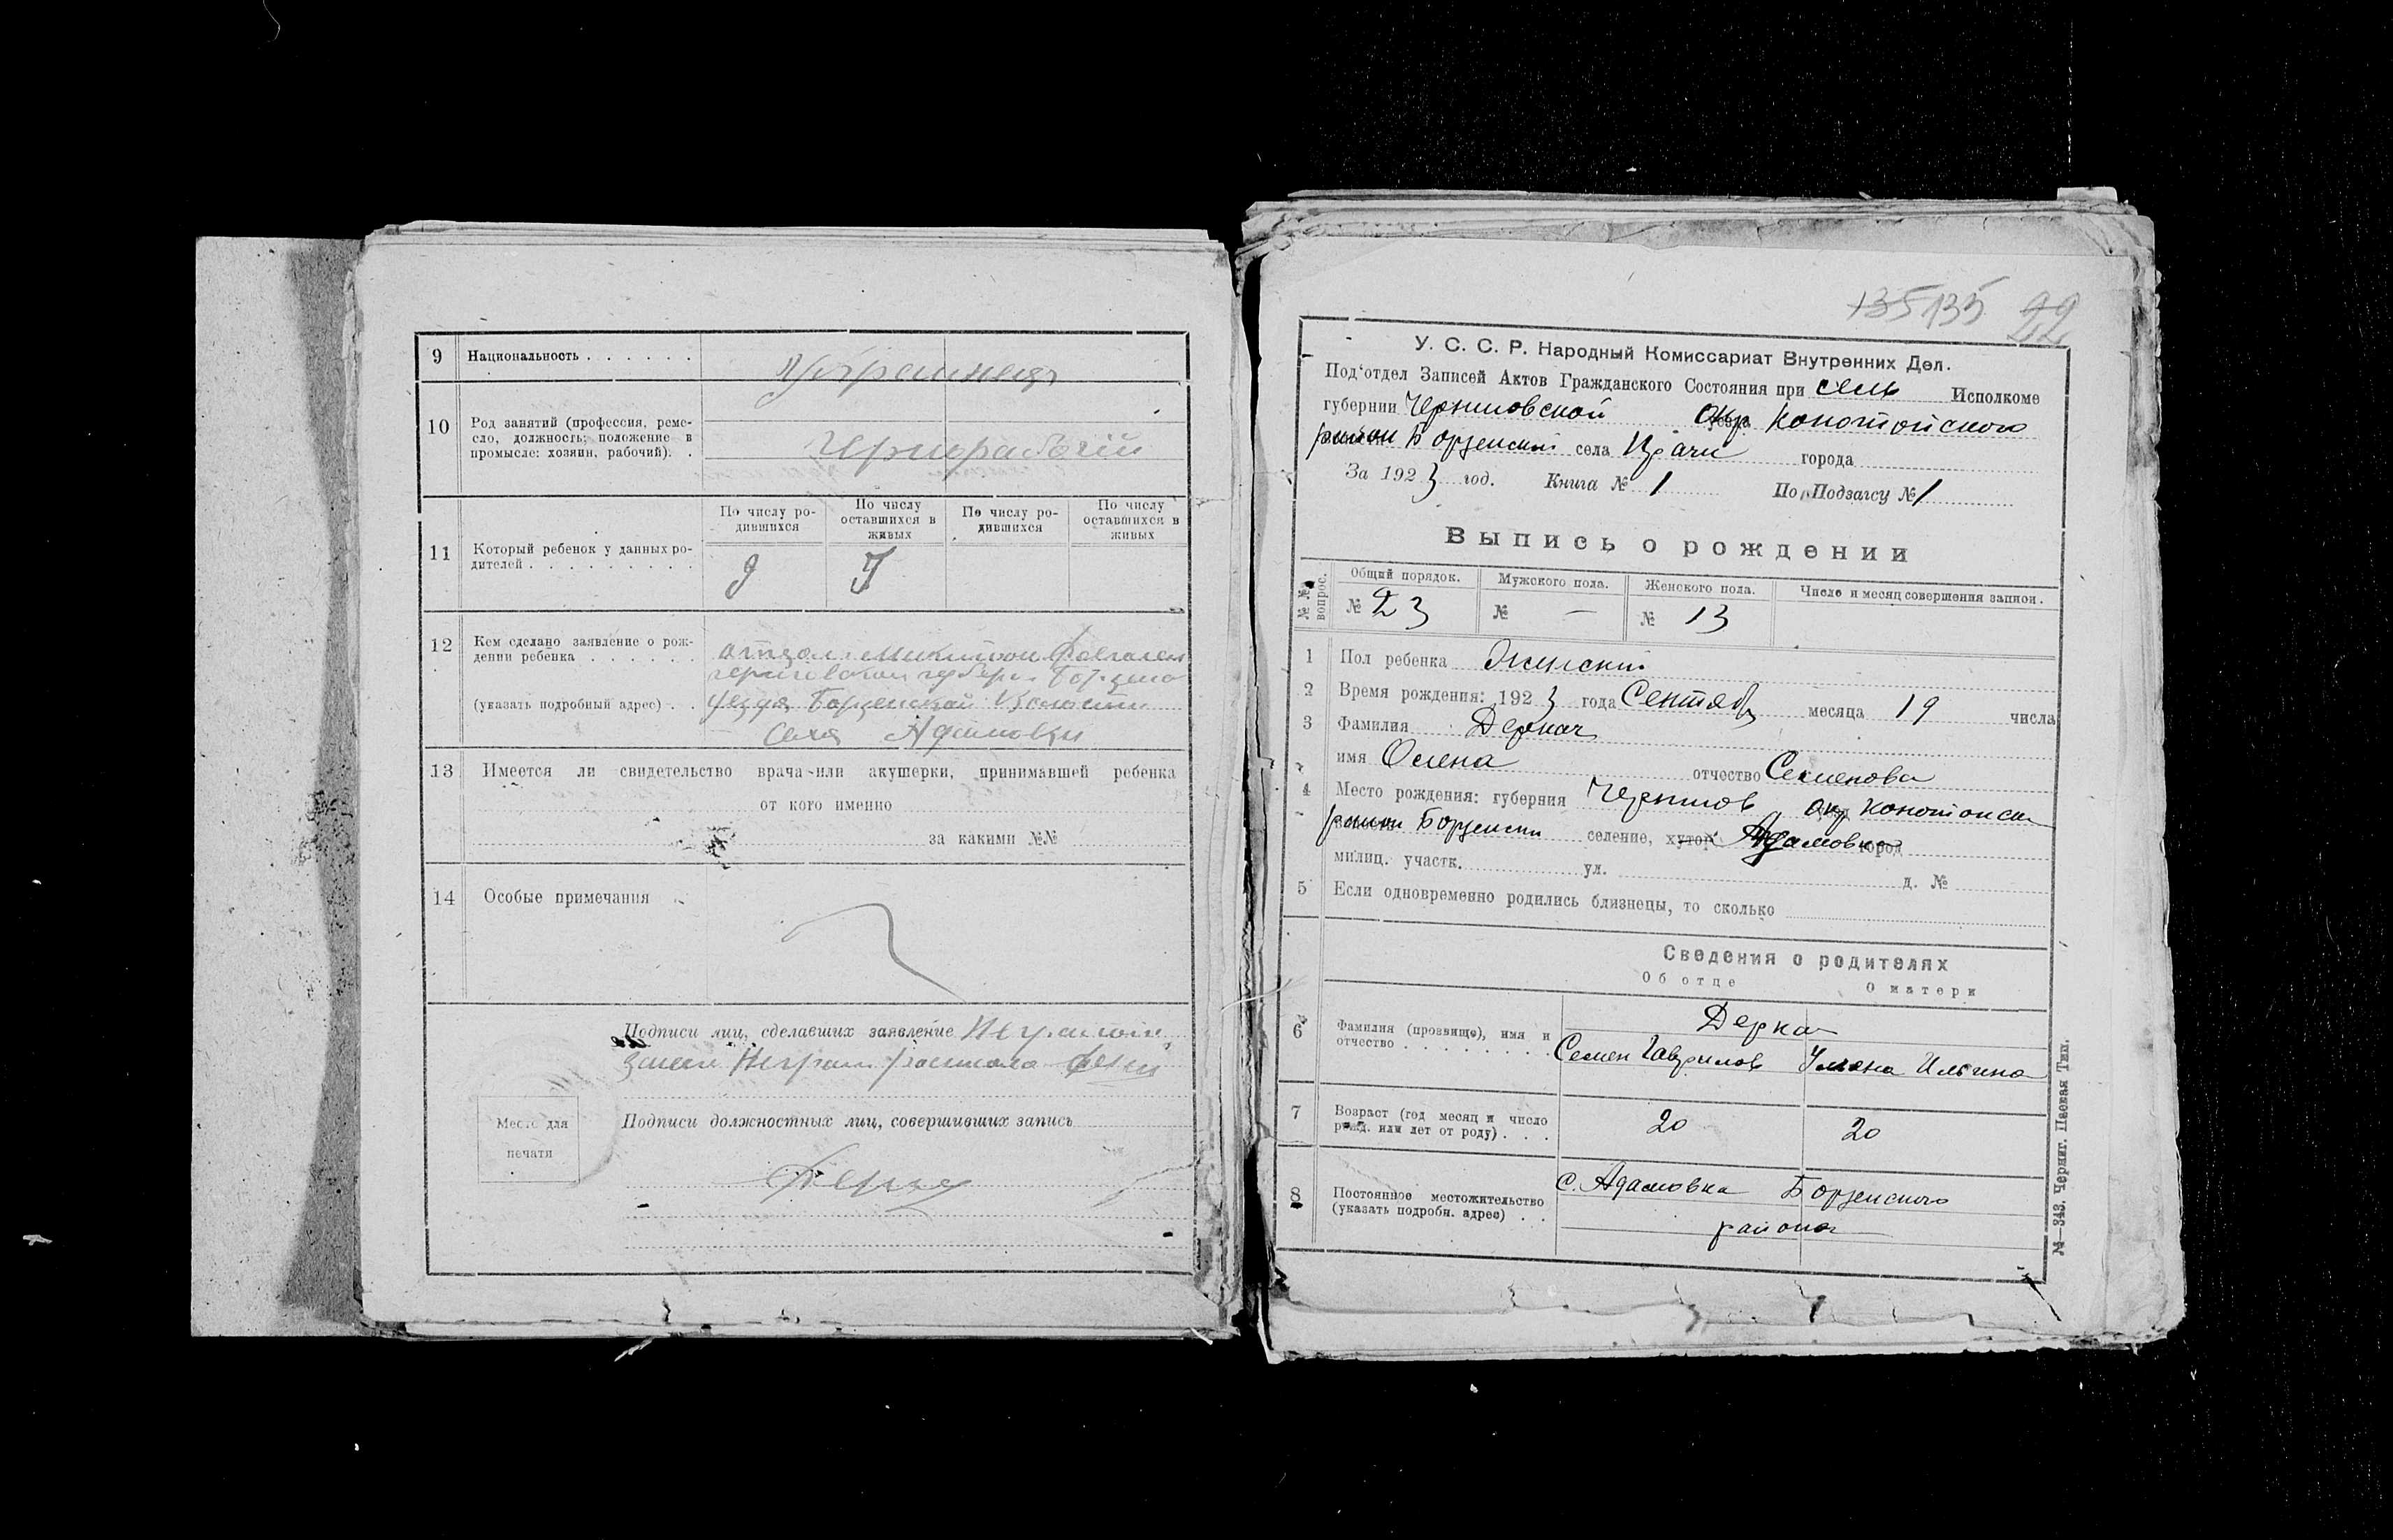 9 Национальность . . . . . .
Украинец
10 Род занятий (профессия, реме-
сло, должность; положение в
промысле: хозяин, рабочий). .
Чернорабочій
11 Который ребенок у данных ро-
дителей . . . . . . . . .
По числу ро-
дившихся
По числу
оставшихся в
живых
По числу ро-
дившихся
По числу
оставшихся в
живых
12 Кем сделано заявление о рож-
дении ребенка . . . . . .
(указать подробный адрес) . .
отцом Микитою
черниговской губерн. Борзенс
уезда Борзенской Волости
Села Адамовки
13 Имеется ли свидетельство врача или акушерки, принимавшей ребенка
от кого именно
за какими №№
14 Особые примечания
Подписи лиц, сделавших заявление Неграмотн
Подписи должностных лиц, совершивших запись
Место для
печати
135 135 22
У. С. С. Р. Народный Комиссариат Внутренних Дел.
Под‘отдел Записей Актов Гражданского Состояния при сель Исполкоме
губернии Черниговской Окр. Конотопского
район Борзенский села города
За 1923 год. Книга № 1 По Подзагсу № 1
Выпись о рождении
№ № вопрос.
Общий порядок. Мужского пола. Женского пола. Число и месяц совершения записи.
№ 23 № — № 13
1 Пол ребенка Женский
2 Время рождения: 1923 года Сентяб месяца 19 числа
3 Фамилия Деркач
имя Олена отчество Семенова
4 Место рождения: губерния Чернигов окр Конотопск
район Борзенски селение, хутор Адамовка город
милиц. участк. ул. д. №
5 Если одновременно родились близнецы, то сколько
Сведения о родителях
Об отце О матери
6 Фамилия (прозвище), имя и
отчество . . . . . . . .
Деркач
Семен Гаврилов Уляна Ильина
7 Возраст (год месяц и число
рожд. или лет от роду) . . .
20 20
8 Постоянное местожительство
(указать подробн. адрес) . . .
с. Адамовка Борзенского
района
№—343. Черниг. Цпевая Тип.